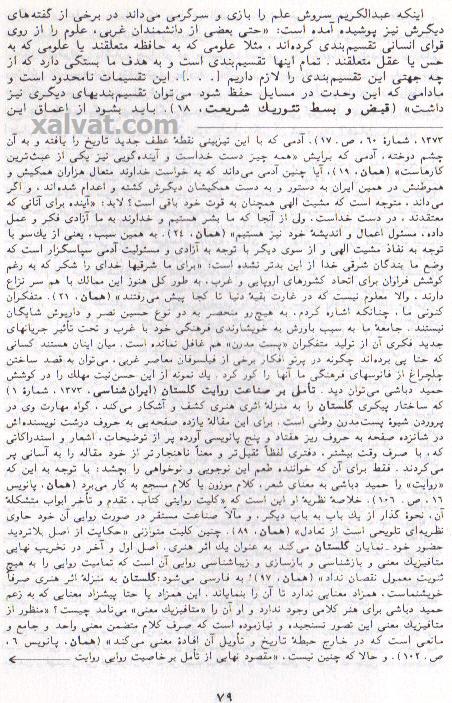 اینکه عبدالکریم سروش علم را بازی و سرگرمی می‌داند در برخی از گفته‌های
دیگرش نیز پوشیده آمده است: «حتی بعضی از دانشمندان غربی، علوم را از روی
قوای انسانی تقسیم‌بندی کرده‌اند، مثلا علومی که به حافظه متعلقند یا علومی که به
حس یا عقل متعلقند. تمام اینها تقسیم‌بندی است و به هدف ما بستگی دارد که از
چه جهتی این تقسیم‌بندی را لازم داریم [. . .]. این تقسیمات نامحدود است و
مادامی که این وحدت در مسایل حفظ شود می توان تقسیم‌بندیهای دیگری نیز
داشت» (قبض و بسط تئوریک شریعت، ١٨). باید بشود از اعماق این
xalvat.com
١٣٧٣، شمارهٔ ٦٠، ص. ١٧). آدمی که با این تیزبینی نقطهٔ عطف جدید تاریخ را یافته و به آن
چشم دوخته، آدمی که برایش «همه چیز دست خداست و آینده‌گویی نیز یکی از عبث‌ترین
کارهاست» (همان، ١٩)، آیا چنین آدمی می‌داند که به خواست خداوند متعال هزاران همکیش و
هموطنش در همین ایران به دستور و به دست همکیشان دیگرش کشته و اعدام شده‌اند، و اگر
می‌داند، متوجه است که مشیت الهی همچنان به قوت خود باقی است؟ لابد: «آینده برای آنانی که
معتقدند، در دست خداست. ولی از آنجا که ما بشر هستیم و خداوند به ما آزادی فکر و عمل
داده، مسئول اعمال و اندیشهٔ خود نیز هستیم» (همان، ٢٤). به همین سبب، یعنی از یک‌سو با
توجه به نفاذ مشیت الهی و از سوی دیگر با توجه به آزادی و مسئولیت آدمی سپاسگزار است که
وضع ما بندگان شرقی خدا از این بدتر نشده است: «برای ما شرقیها خدای را شکر که به رغم
کوشش فراوان برای اتحاد کشورهای اروپایی و غرب، به طور کل هنوز این ممالک با هم سر نزاع
دارند، والا معلوم نیست که در غارت بقیهٔ دنیا تا کجا پیش می‌رفتند» (همان، ٢١). متفکران
کنونی ما، چنانکه اشاره کردم، به هیچ‌رو منحصر به دو نوع حسین نصر و داریوش شایگان
نیستند. جامعهٔ ما به سبب باورش به خویشاوندی فرهنگی خود با غرب و تحت تأثیر جریانهای
جدید فکری آن از تولید متفکران «پست مدرن» هم غافل نمانده است. میان اینان هستند کسانی
که حتا پی برده‌اند چگونه در پرتو افکار برخی از فیلسوفان معاصر غربی، می‌توان به قصد ساختن
چلچراغ از فانوسهای فرهنگی ما آنها را کور کرد. یک نمونه از این حسن‌نیت مهلک را در کوشش
حمید دباشی می‌توان دید. تأملی بر صناعت روایت گلستان (ایران‌شناسی، ١٣٧٣، شمارهٔ ١)
که ساختار پیگری گلستان را به منزلهٔ اثری هنری کشف و آشکار می‌کند، گواه مهارت وی در
پروردن شیوهٔ پست‌مدرن وطنی است. برای این مقالهٔ یازده صفحه‌یی به حروف درشت نویسنده‌اش
در شانزده صفحه به حروف ریز هفتاد و پنج پانویس آورده پر از توضیحات، اشعار و استدراکاتی
که، با صرف وقت بیشتر، دفتری لفظاً ثقیل‌تر و معناً ناهنجارتر از خود مقاله را به آسانی پر
می‌کردند. فقط برای آن که خواننده طعم این نوجویی و نوخواهی را بچشد: با توجه به این که
«روایت» را حمید دباشی به معنای شعر، کلام موزون یا کلام مسجع به کار می‌برد (همان، پانویس
١٦، ص. ١٠٦)، خلاصهٔ نظریهٔ او این است که «کلیت روایتی کتاب، تقدم و تأخر ابواب متشکلهٔ
آن، نحوهٔ گذار از یک باب به باب دیگر، و مآلا صناعت مستقر در صورت روایی آن خود حاوی
نظریه‌ای تلویحی است از تعادل» (همان، ٨٩). چنین کلیت متوازنی «حکایت از اصل بلاتردید
حضور خود ـ نمایان گلستان می‌کند به عنوان یک اثر هنری. اصل اول و آخر در تخریب نهایی
متافیزیک معنی و بازشناسی و بازسازی و زیباشناسی روایی آن است که تمامیت روایی را به هیچ
ثنویت معمول نقصان نداد» (همان، ٩٧)! به فارسی می‌شود: گلستان به منزلهٔ اثر هنری صرفاً
خویشنماست، همزاد معنایی ندارد تا آن را بنمایاند. این همزاد یا حتا پیشزاد معنایی که به زعم
حمید دباشی برای هنر کلامی وجود ندارد و او آن را «متافیزیک معنی» می‌نامد چیست؟ «منظور از
متافیزیک معنی این تصور نسنجیده و نیازموده است که صرف کلام متضمن معنی واحد و جامع و
مانعی است که در خارج حیطهٔ تاریخ و تأویل آن افادهٔ معنی می‌کند» (همان، پانویس ٦،
ص. ١٠٢). و حالا که چنین نیست، «مقصود نهایی از تأمل بر خاصیت روایی روایت
٧٩